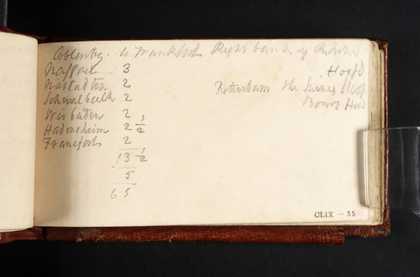 Coblentz to Frankfort Right bank of Rhine
Nassau 3
Nastadten 2
Schwalbach 2
Wisbaden 2
Hadersheim 2 1/2
Francfort 2
13 1/2
5
65
Hoofd
Rotterdam the
CLIX - 55